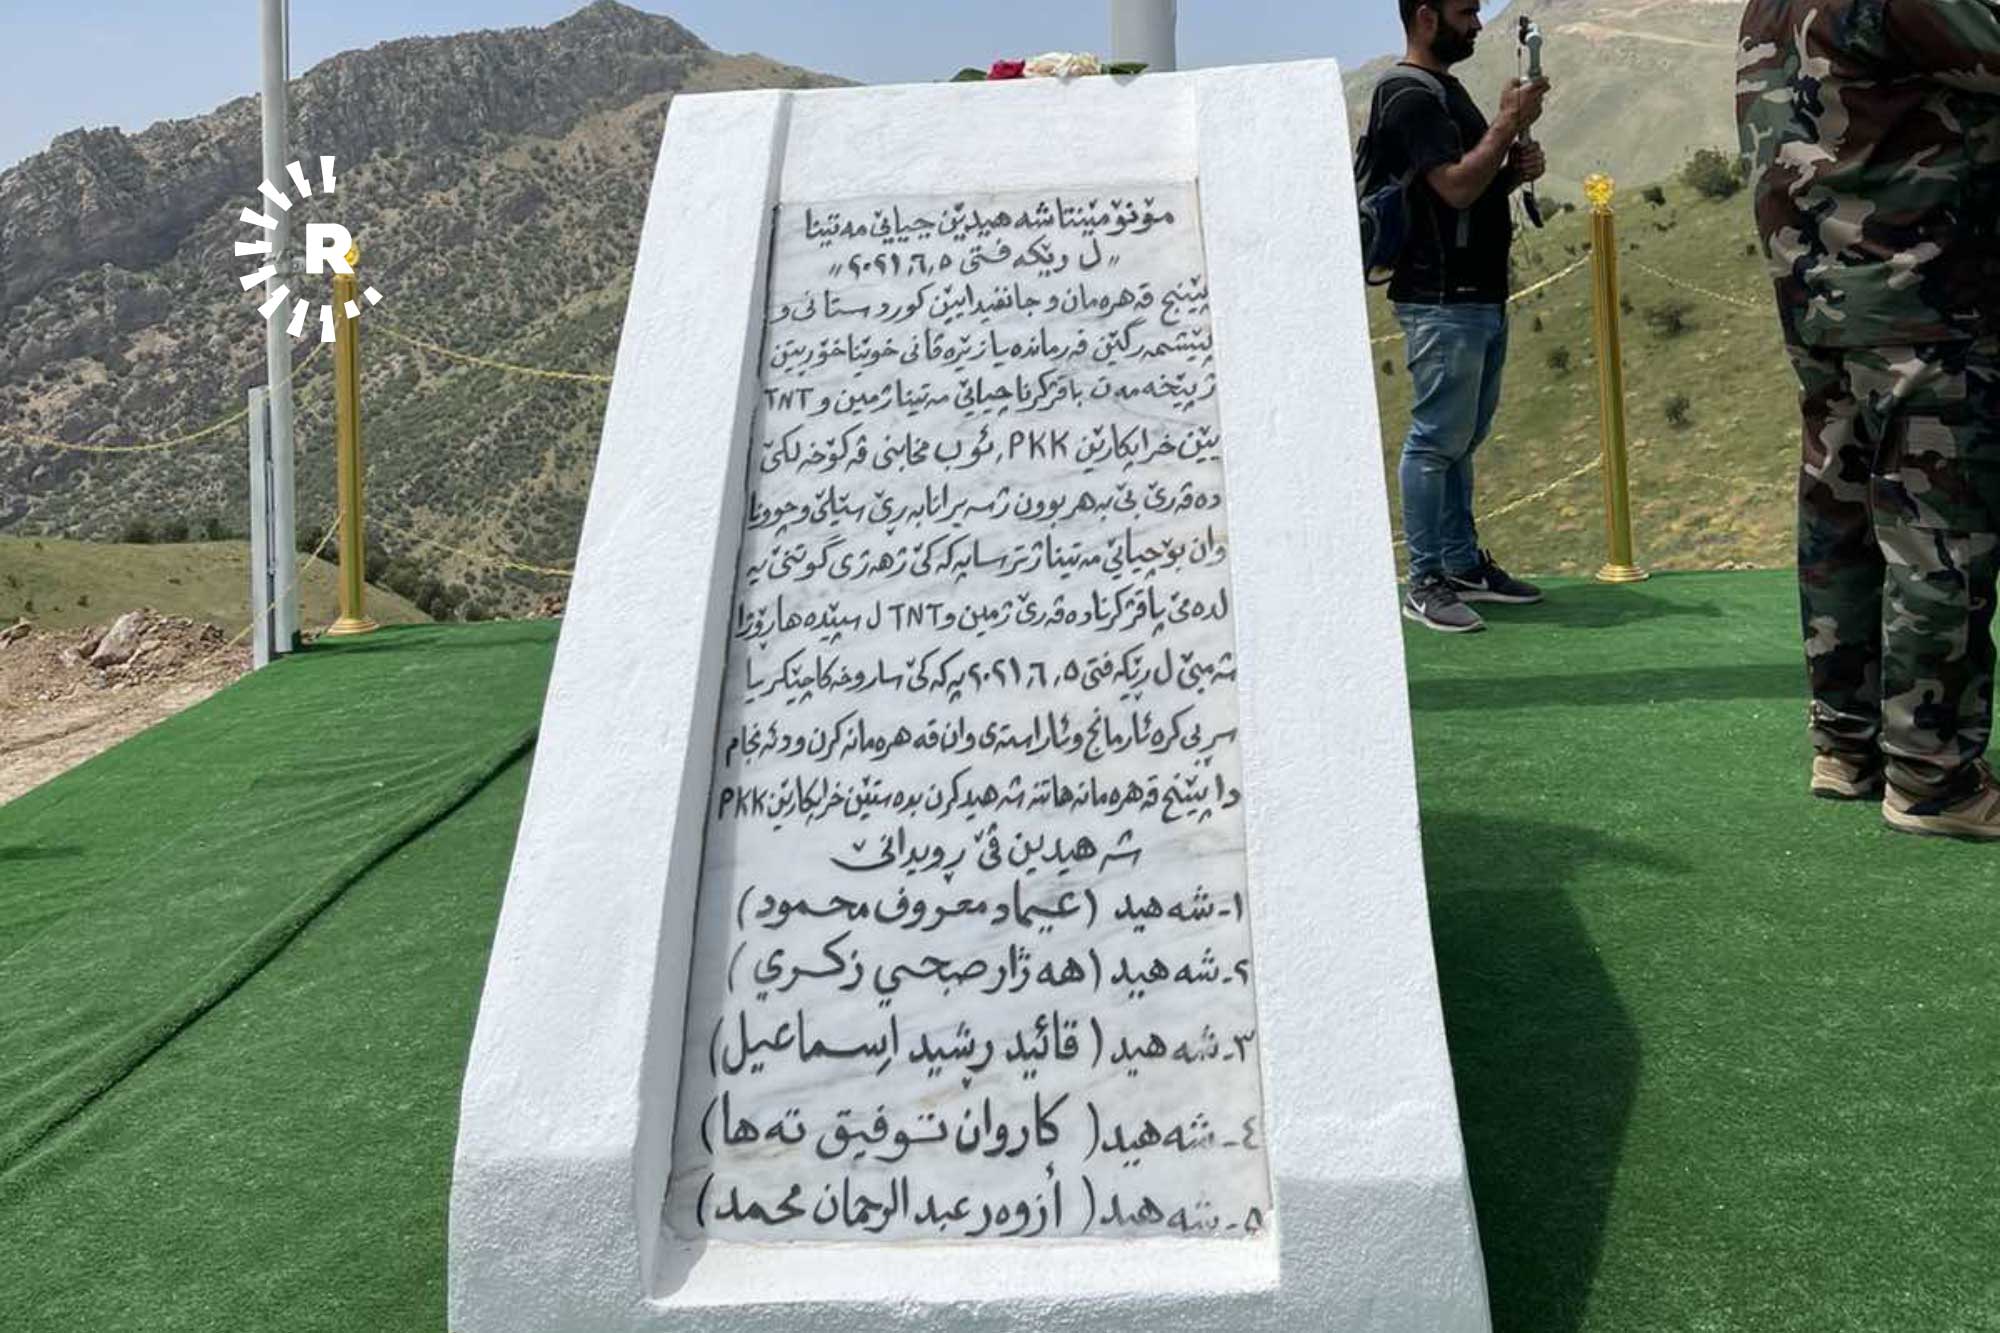 R
مۆنۆمێنتا شەهیدێن چیایێ مەتینا
〃 ل رێکەفتی ٢٠٢١,٦,٥ 〃
پێنج قەهرەمان و جانفیدایێن کوردستانی و
پێشمەرگێن فەرماندە یا زێرەڤانی خوێنا خۆ ریتن
ژ پێخەمەت پاقژکرنا چیایێ مەتینا ژ مین و TNT
یێن خرابکارێن PKK, ئو ب مخابنی ڤە کۆ خەلکێ
دەڤەرێ بێ بەهر بوون ژ سەیرانا بەڕێ ستێلێ و چوونا
وان بۆ چیایێ مەتینا ژ ترسا پەکەکێ ژ هەژی گوتنێ یە
لدەمێ پاقژکرنا دەڤەرێ ژ مین و TNT ل سپێدەها رۆژا
شەمبێ ل رێکەفتی ٢٠٢١,٦,٥ پەکەکێ
کرە ئارمانج و ئاراستەی وان قەهرەمانە کرن و د ئەنجام
دا پێنج قەهرەمانە هاتنە شەهیدکرن بدەستێن خرابکارێن PKK
شەهیدێن ڤێ رویدانێ
١- شەهید (عیماد معروف محمود)
٢- شەهید (هەژار صبحي زكري)
٣- شەهید (قائید رشید اسماعیل)
٤- شەهید (کاروان توفیق تەها)
٥- شەهید (أزوەر عبدالرحمان محمد)